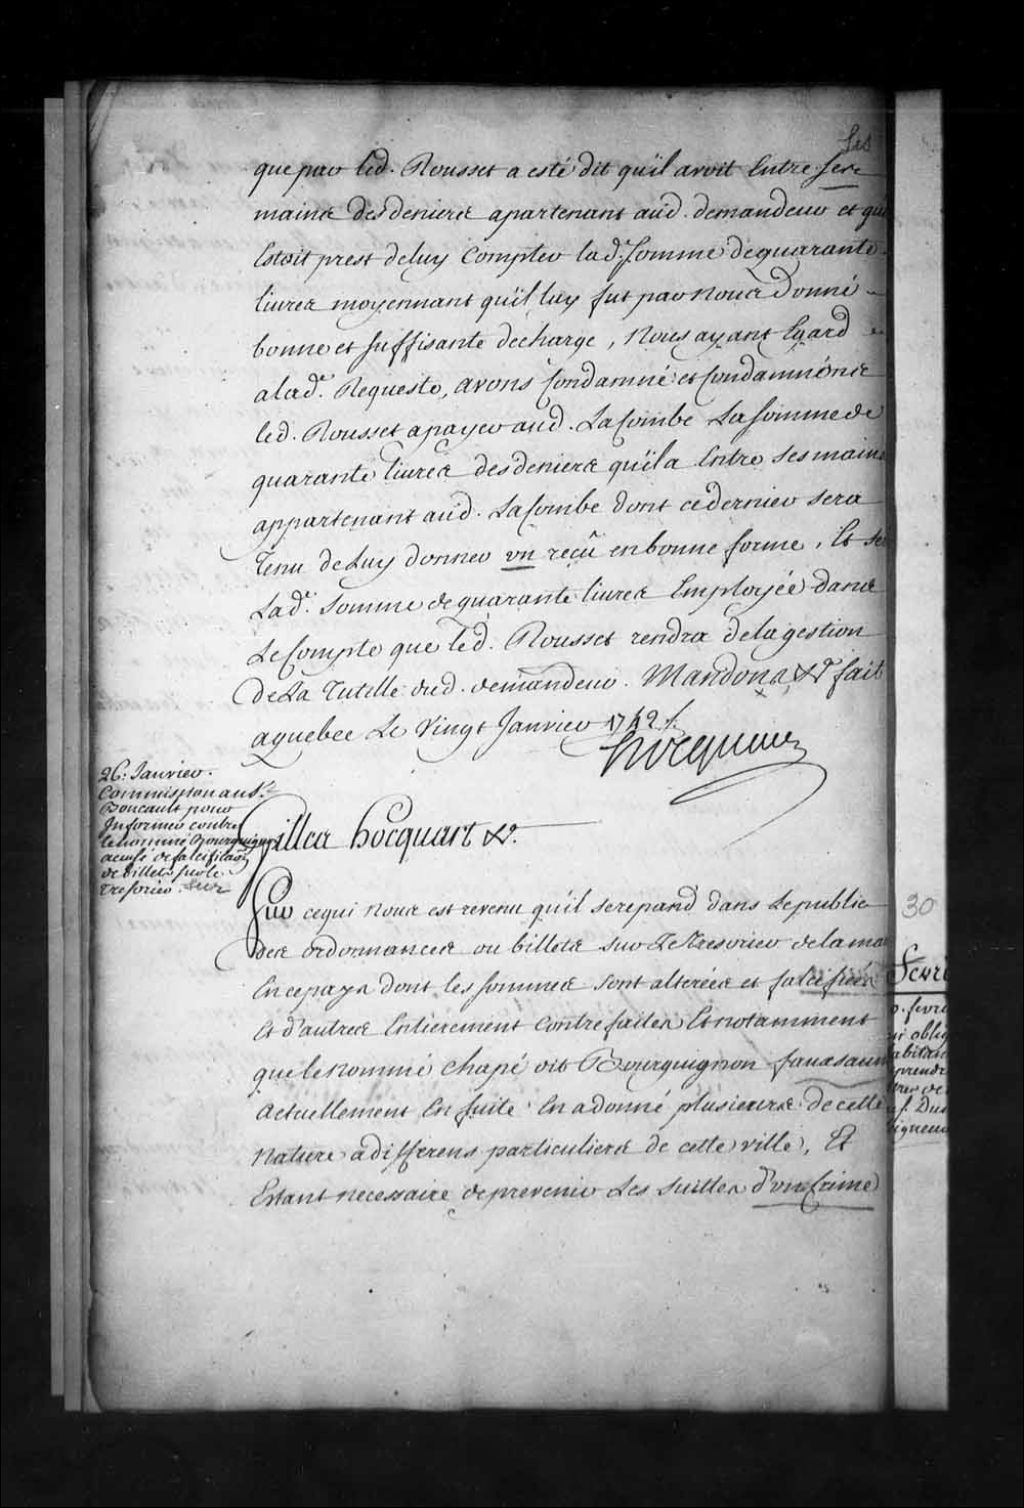 Ses
que par led. Rousset a esté dit qu'il avoit Entre ses
mains des deniers apartenant aud. demandeur et qu
Estoit prest de luy Compter lad. Somme de quarante
livres moyennant qu'il luy fut par nous donné
bonne et suffisante decharge, Nous ayant Egard
a lad. Requeste, avons Condamné et Condamnons
led. Rousset a payer aud. LaCombe La somme de
quarante livres des deniers qu'il a Entre Ses mains
appartenant aud. LaCombe dont ce dernier sera
Tenu de Luy donner un reçû en bonne forme, Et se
Lad. Somme de quarante livres Employée dans
Le Compte que led. Rousset rendra de la gestion
de La Tutelle dud. demandeur. Mandons &a fait
a quebec Le Vingt Janvier 1742 /.
hocquart
26. Janvier.
Commission au Sr.
Boucault pour
Informer contre
le nommé Bourguignon
acusé de falsification
de billets sur le
Tresorier.
Gilles hocquart &a.
Sur ce qui nous est revenu qu'il se repand dans Le public
des ordonnances ou billets sur Le Tresorier de la ma
En ce pays dont les sommes sont alterées et falcifiées
Et d'autres Entierement Contrefaites Et notamment
que le nommé Chapé dit Bourguignon faux saun
Actuellement En fuite En a donné plusieurs de cette
Nature a differens particuliers de cette ville, Et
Estant necessaire de prevenir Les Suittes d'un Crime
30
Fevri